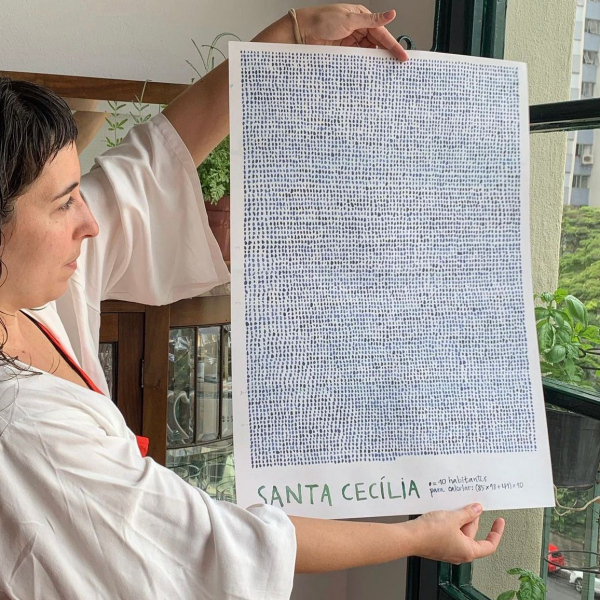 SANTA CECÍLIA
●= 10 habitantes
para calcular: (85×98+49)×10